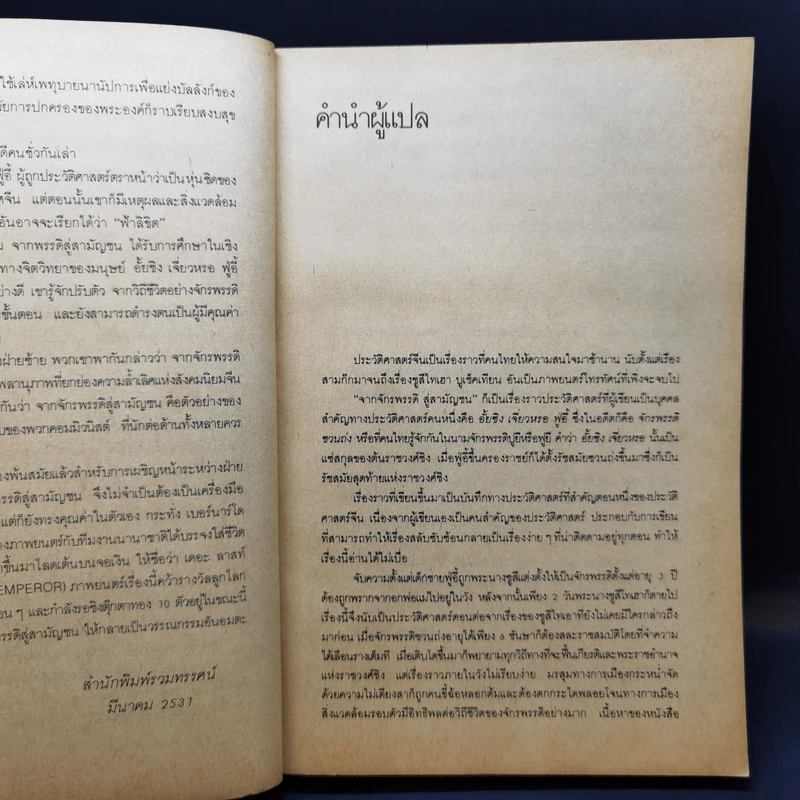 ใช้เล่ห์เพทุบายนานัปการเพื่อแย่งบัลลังก์ของ
การปกครองของพระองค์ก็ราบเรียบสงบสุข
ดีคนชั่วกันเล่า
ผู้ถูกประวัติศาสตร์ตราหน้าว่าเป็นหุ่นชิดของ
แต่ตอนนั้นเขาก็มีเหตุผลและสิ่งแวดล้อม
อันอาจจะเรียกได้ว่า “ฟ้าลิขิต”
จากพรรดิสู่สามัญชน ได้รับการศึกษาในเชิง
ทางจิตวิทยาของมนุษย์ อั้ยชิง เจี่ยวหรอ ฟูอี้
เขารู้จักปรับตัว จากวิถีชีวิตอย่างจักรพรรดิ
ขั้นตอน และยังสามารถดำรงตนเป็นผู้มีคุณค่า
ฝ่ายซ้าย พวกเขาพากันกล่าวว่า จากจักรพรรดิ
พลานุภาพที่ยกย่องความล้ำเลิศแห่งสังคมนิยมจีน
กันว่า จากจักรพรรดิสู่สามัญชน คือตัวอย่างของ
ของพวกคอมมิวนิสต์ ที่นักต่อต้านทั้งหลายควร
พ้นสมัยแล้วสำหรับการเผชิญหน้าระหว่างฝ่าย
สู่สามัญชน จึงไม่จำเป็นต้องเป็นเครื่องมือ
แต่ก็ยังทรงคุณค่าในตัวเอง กระทั่ง เบอร์นาร์โด
ภาพยนตร์กับทีมงานนานาชาติได้บรรจงใส่ชีวิต
ขึ้นมาโลดเต้นบนจอเงิน ให้ชื่อว่า เดอะ ลาสท์
EMPEROR) ภาพยนตร์เรื่องนี้คว้ารางวัลลูกโลก
ๆ และกำลังรอชิงตุ๊กตาทอง 10 ตัวอยู่ในขณะนี้
สู่สามัญชน ให้กลายเป็นวรรณกรรมอันอมตะ
สำนักพิมพ์รวมทรรศน์
มีนาคม 2531
คำนำผู้แปล
ประวัติศาสตร์จีนเป็นเรื่องราวที่คนไทยให้ความสนใจมาช้านาน นับตั้งแต่เรื่อง
สามก๊กมาจนถึงเรื่องซูสีไทเฮา บูเช็คเทียน อันเป็นภาพยนตร์โทรทัศน์ที่เพิ่งจะจบไป
“จากจักรพรรดิ สู่สามัญชน” ก็เป็นเรื่องราวประวัติศาสตร์ที่ผู้เขียนเป็นบุคคล
สำคัญทางประวัติศาสตร์คนหนึ่งคือ อั้ยชิง เจี่ยวหรอ ฟูอี้ ซึ่งในอดีตก็คือ จักรพรรดิ
ชวนถ่ง หรือที่คนไทยรู้จักกันในนามจักรพรรดิปูยีหรือฟูยี คำว่า อั้ยชิง เจี่ยวหรอ นั้นเป็น
แซ่สกุลของต้นราชวงศ์ชิง เมื่อฟูอี้ขึ้นครองราชย์ก็ได้ตั้งรัชสมัยชวนถ่งขึ้นมาซึ่งก็เป็น
รัชสมัยสุดท้ายแห่งราชวงศ์ชิง
เรื่องราวที่เขียนขึ้นมาเป็นบันทึกทางประวัติศาสตร์ที่สำคัญตอนหนึ่งของประวัติ
ศาสตร์จีน เนื่องจากผู้เขียนเองเป็นคนสำคัญของประวัติศาสตร์ ประกอบกับการเขียน
ที่สามารถทำให้เรื่องสลับซับซ้อนกลายเป็นเรื่องง่าย ๆ ที่น่าติดตามอยู่ทุกตอน ทำให้
เรื่องนี้อ่านได้ไม่เบื่อ
จับความตั้งแต่เด็กชายฟูอี้ถูกพระนางซูสีแต่งตั้งให้เป็นจักรพรรดิตั้งแต่อายุ 3 ปี
ต้องถูกพรากจากอกพ่อแม่ไปอยู่ในวัง หลังจากนั้นเพียง 2 วันพระนางซูสีไทเฮาก็ตายไป
เรื่องนี้จึงนับเป็นประวัติศาสตร์ตอนต่อจากเรื่องของซูสีไทเฮาที่ยังไม่เคยมีใครกล่าวถึง
มาก่อน เมื่อจักรพรรดิชวนถ่งอายุได้เพียง 6 ชันษาก็ต้องสละราชสมบัติโดยที่จำความ
ได้เลือนรางเต็มที เมื่อเติบโตขึ้นมาก็พยายามทุกวิถีทางที่จะฟื้นเกียรติและพระราชอำนาจ
แห่งราชวงศ์ชิง แต่เรื่องราวภายในวังไม่เรียบง่าย มรสุมทางการเมืองกระหน่ำจัด
ด้วยความไม่เดียงสาก็ถูกคนขี้ฉ้อหลอกต้มและต้องตกกระไดพลอยโจนทางการเมือง
สิ่งแวดล้อมรอบตัวมีอิทธิพลต่อวิถีชีวิตของจักรพรรดิอย่างมาก เนื้อหาของหนังสือ